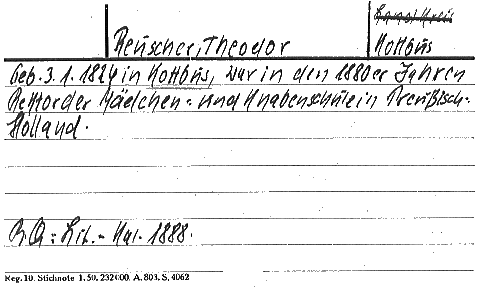 Landkreis
Reuscher, Theodor Kottbus
Geb. 3. 1. 1824 in Kottbus, war in den 1880er Jahren
Rektor der Mädchen- und Knabenschule in Preußisch-
Holland.
B. Q.: Lit.-Kal. 1888.
Reg. 10. Stichnote 1. 50. 232000. A. 803. S. 4062